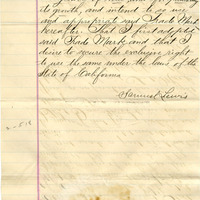 its growth, and intend to so use
and appropriate said Trade Mark
hereafter. That I first adopted
said Trade Mark and that I
desire to secure the exclusive right
to use the same under the laws of the
State of California
Samuel Lewis